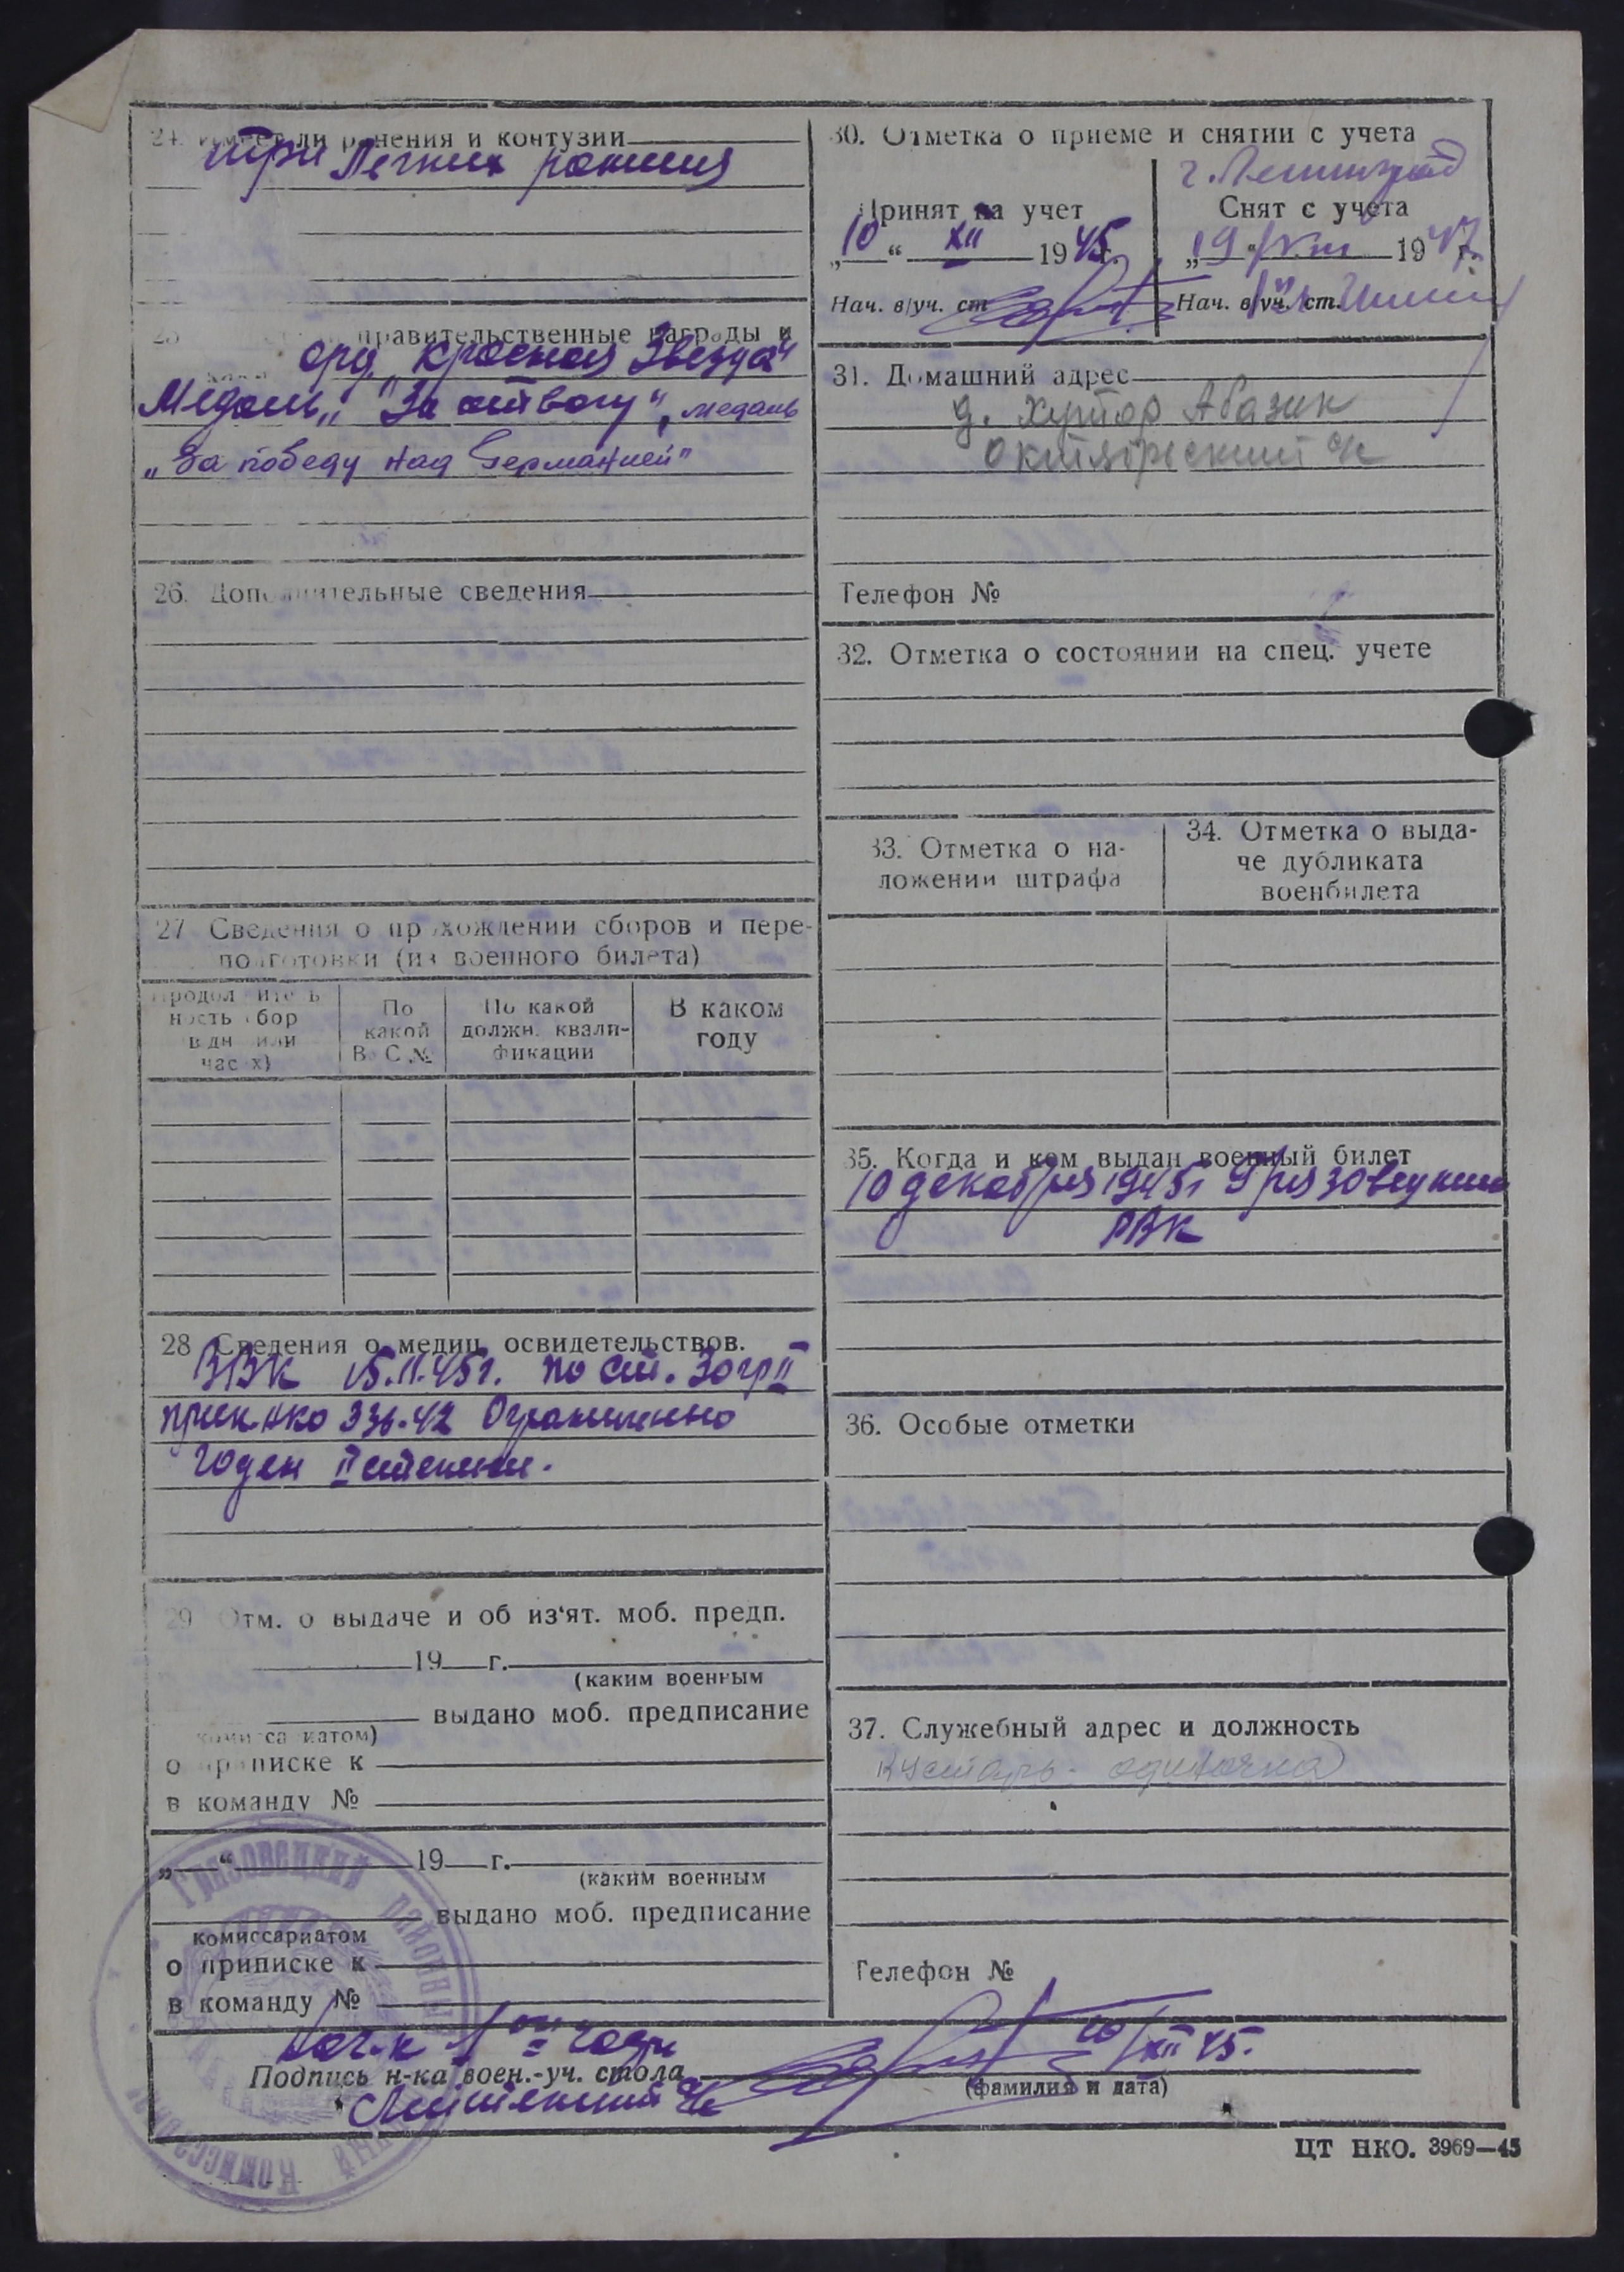 24. Имеет ли ранения и контузии
три Легких ранения
25 правительственные награды и
орд. "Красная Звезда"
Медаль "За отвагу", медаль
„За победу над Германией"
26. Дополнительные сведения
27 Сведения о прохождении сборов и пере-
подготовки (из военного билета)
Продолжитель
ность сбор
в дн или
часах)
По
какой
ВУС №
По какой
должн. квали-
фикации
В каком
году
28 Сведения о медиц. освидетельствов.
ВВК 15.11.45г. по ст. 30 гр II
прик НКО 336-42 Ограниченно
годен II степени.
29 Отм. о выдаче и об из'ят. моб. предп.
19 г.
(каким военным
выдано моб. предписание
комиссариатом)
о приписке к
в команду №
„ “ 19 г.
(каким военным
выдано моб. предписание
комиссариатом
о приписке к
в команду №
30. Отметка о приеме и снятии с учета
г. Ленинград
Принят на учет
„10“ XII 1945 г.
Нач. в/уч. ст.
Снят с учета
„19“ VIII 1947 г.
Нач. в/уч. ст.
31. Домашний адрес
д. Хутор Абазин
Октябрьский с/с
Телефон №
32. Отметка о состоянии на спец. учете
33. Отметка о на-
ложении штрафа
34. Отметка о выда-
че дубликата
военбилета
35. Когда и кем выдан военный билет
10 декабря 1945г Грязовецким
РВК
36. Особые отметки
37. Служебный адрес и должность
кустарь-одиночка
Телефон №
Нач-к 1 ой части
Подпись н-ка воен.-уч. стола
10/XII 45.
(фамилия и дата)
Грязовецкий районный
Комиссариат
ЦТ НКО. 3969—45